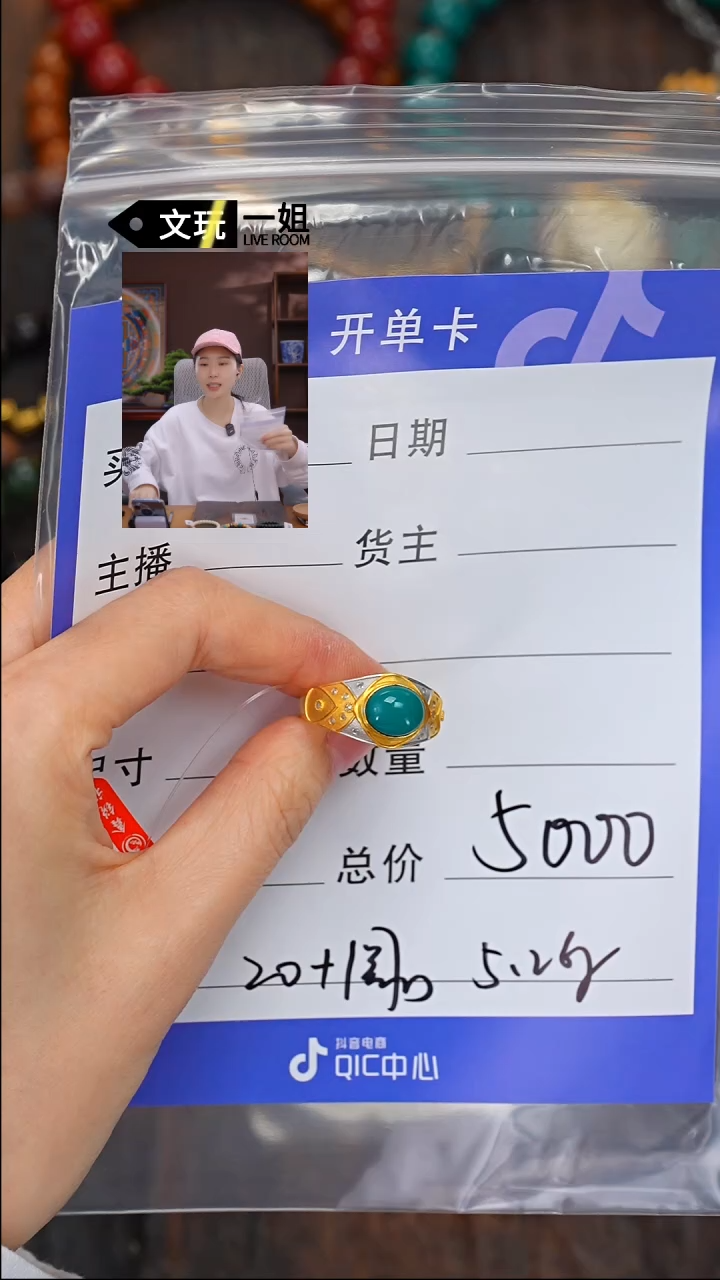 文玩一姐
LIVE ROOM
开单卡
买 日期
主播 货主
尺寸 数量
总价 5000
5.2g
抖音电商
QIC中心